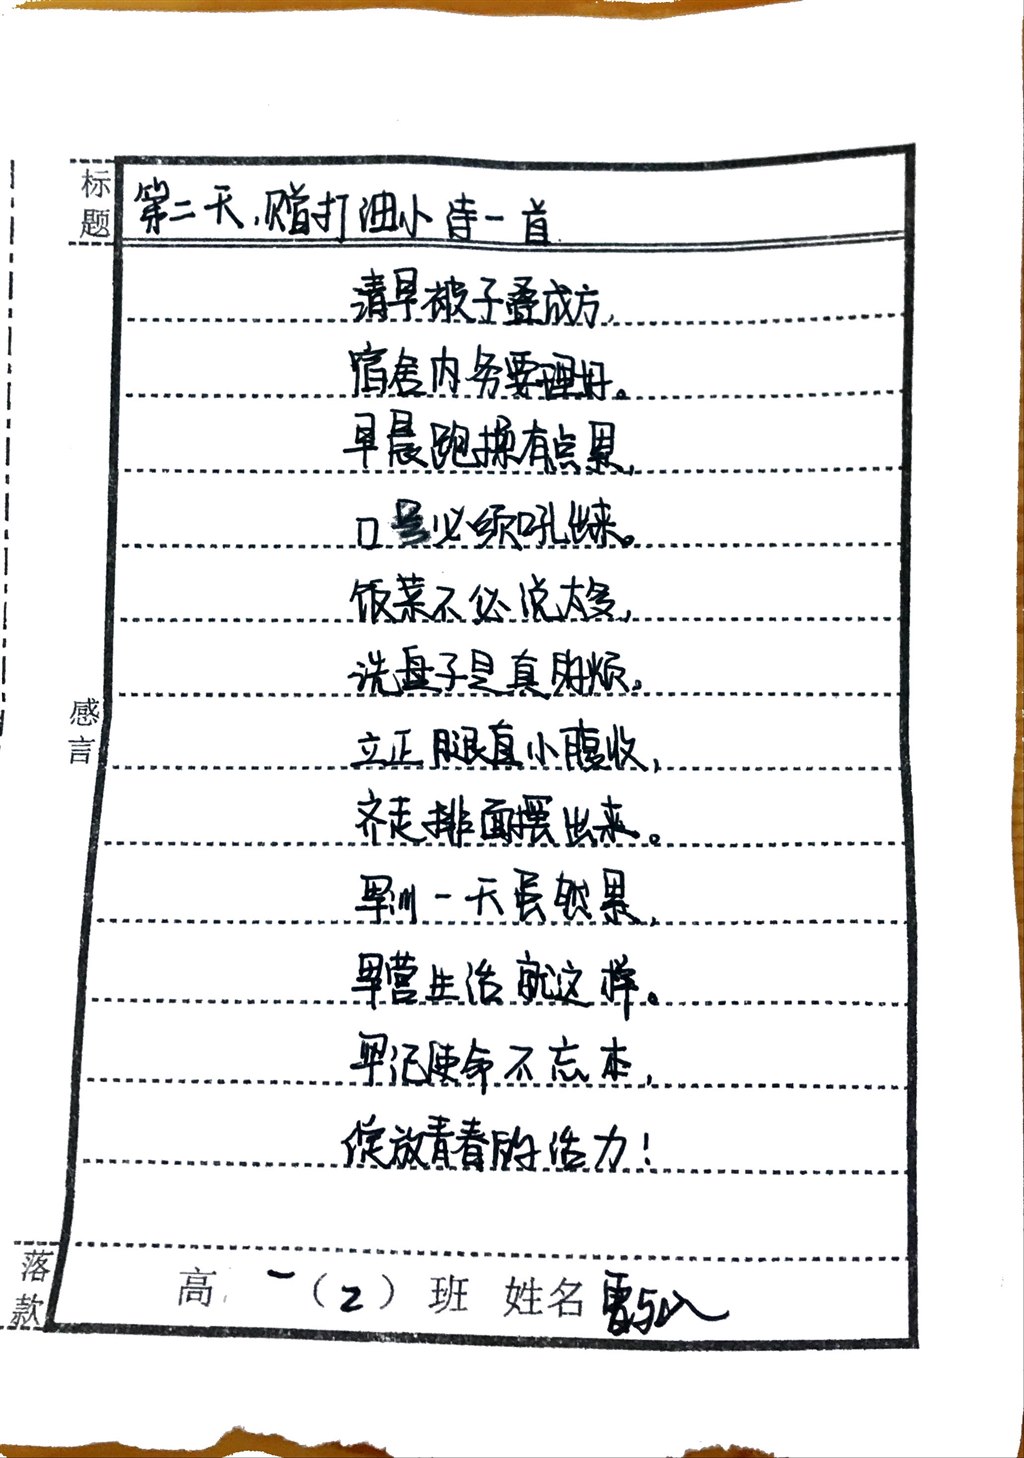 标题
第二天,赠打油小诗一首
清早被子叠成方,
宿舍内务要理好。
早晨跑操有点累,
口号必须吼出来。
饭菜不必说太多,
洗盘子是真麻烦。
立正腿直小腹收,
齐走排面摆出来。
军训一天虽然累,
军营生活就这样。
牢记使命不忘本,
绽放青春的活力！
感言
落款
高一（2）班 姓名